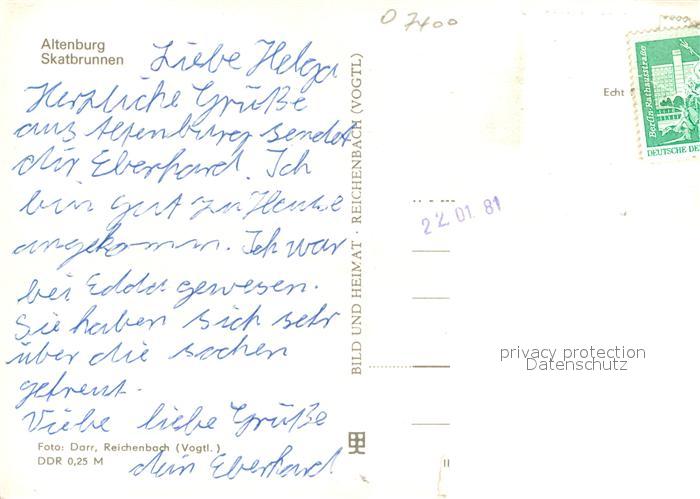 Altenburg
Skatbrunnen
Liebe Helga
Herzliche Grüße
aus Altenburg sendet
dir Eberhard. Ich
bin gut zu Hause
angekomm. Ich war
bei Edda gewesen.
Sie haben sich sehr
über die sachen
gefreut.
Viebe liebe Grüße
dein Eberhard
Foto: Darr, Reichenbach (Vogtl.)
DDR 0,25 M
BILD UND HEIMAT · REICHENBACH (VOGTL)
O 7400
Echt
Berlin-Rathausstraße
DEUTSCHE DE
22. 01. 81
privacy protection
Datenschutz
II